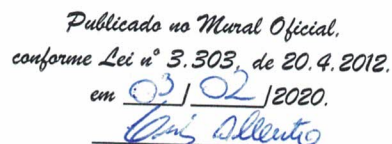 Publicado no Mural Oficial,
conforme Lei nº 3.303, de 20.4.2012.
em 03/02/2020.